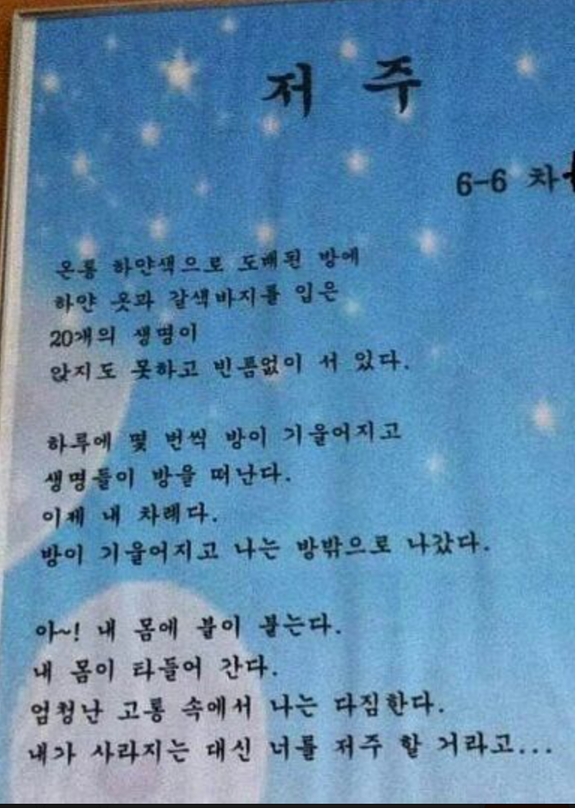 저 주
6-6 차
온통 하얀색으로 도배된 방에
하얀 옷과 갈색바지를 입은
20개의 생명이
앉지도 못하고 빈틈없이 서 있다.
하루에 몇 번씩 방이 기울어지고
생명들이 방을 떠난다.
이제 내 차례다.
방이 기울어지고 나는 방밖으로 나갔다.
아~! 내 몸에 불이 붙는다.
내 몸이 타들어 간다.
엄청난 고통 속에서 나는 다짐한다.
내가 사라지는 대신 너를 저주 할 거라고...